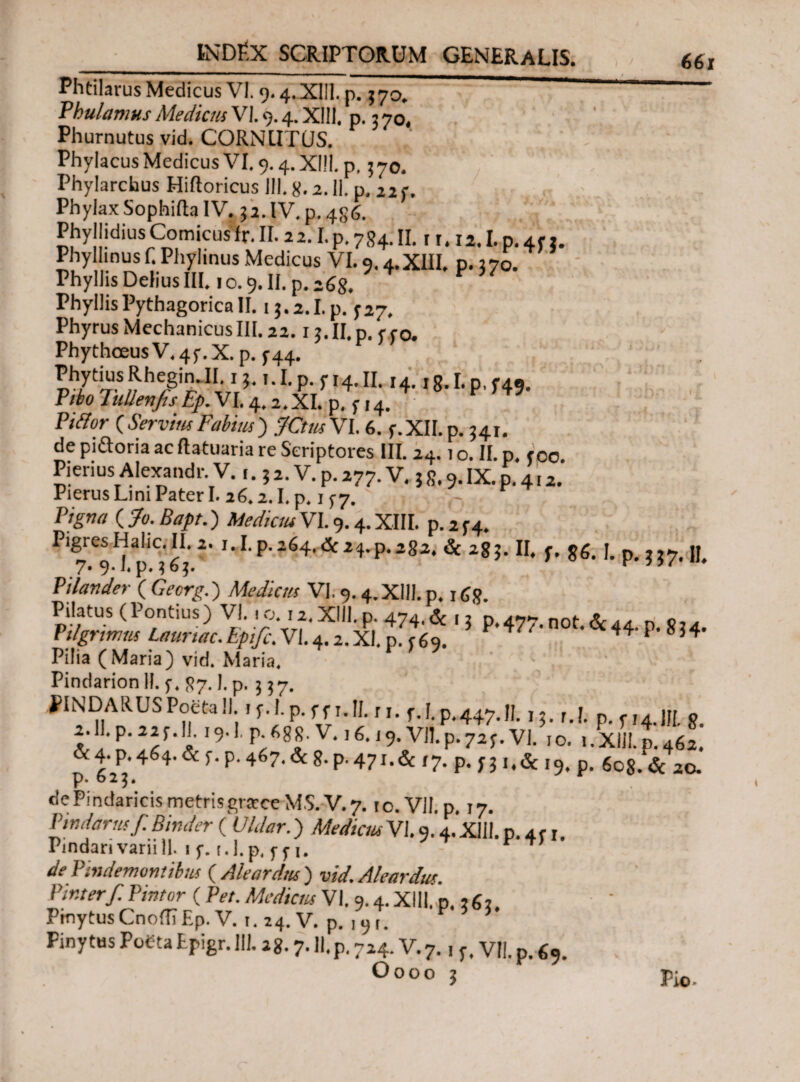 INDEX SCRIPTORUM GENERALIS. 661
Phtilarus Medicus VI. 9. 4. XIII. p. 370.
Phulamus Medicus VI. 9. 4. XIII. p. 370.
Phurnutus vid. CORNUTUS.
Phylacus Medicus VI. 9. 4. XIII. p. 370.
Phylarchus Hiſtoricus III. 8. 2. II. p. 225.
Phylax Sophiſta IV. 32. IV. p. 486.
Phyllidius Comicus fr. II. 22. I. p. 784. II. 11. 12. I. p. 453.
Phyllinus f. Phylinus Medicus VI. 9. 4. XIII. p. 370.
Phyllis Delius III. 10. 9. II. p. 268.
Phyllis Pythagorica II. 13. 2. I. p. 527.
Phyrus Mechanicus III. 22. 13. II. p. 550.
Phythœus V. 45. X. p. 544.
Phytius Rhegin. II. 13. 1. I. p. 514. II. 14. 18. I. p. 549.
Pibo Tullenſis Ep. VI. 4. 2. XI. p. 514.
Pictor (Servius Fabius) JCtus VI. 6. 5. XII. p. 341.
de pictoria ac ſtatuaria re Scriptores III. 24. 10. II. p. 500.
Pierius Alexandr. V. 1. 32. V. p. 277. V. 38. 9. IX. p. 412.
Pierus Lini Pater I. 26. 2. I. p. 157.
Pigna (Jo. Bapt.) Medicus VI. 9. 4. XIII. p. 254.
Pigres Halic. II. 2. 1. I. p. 264. & 24. p. 282. & 283. II. 5. 86. I. p. 337. II.
7. 9. I. p. 363.
Pilander (Georg.) Medicus VI. 9. 4. XIII. p. 168.
Pilatus (Pontius) VI. 10. 12. XIII. p. 474. & 13 p. 477. not. & 44. p. 834.
Pilgrimus Lauriac. Epiſc. VI. 4. 2. XI. p. 569.
Pilia (Maria) vid. Maria.
Pindarion II. 5. 87. I. p. 337.
PINDARUS Poëta II. 15. I. p. 551. II. 11. 5. I. p. 447. II. 13. 1. I. p. 514. III. 8.
2. II. p. 225. II. 19. I. p. 688. V. 16. 19. VII. p. 725. VI. 10. 1. XIII. p. 462.
& 4. p. 464. & 5. p. 467. & 8. p. 471. & 17. p. 531. & 19. p. 608. & 20.
p. 623.
de Pindaricis metris græce MS. V. 7. 10. VII. p. 17.
Pindarus ſ. Binder (Uldar.) Medicus VI. 9. 4. XIII. p. 451.
Pindari varii II. 15. 1. I. p. 551.
de Pindemontibus (Aleardus) vid. Aleardus.
Pinter ſ. Pintor (Pet. Medicus VI. 9. 4. XIII. p. 363.
Pinytus Cnoſſi Ep. V. 1. 24. V. p. 191.
Pinytus Poëta Epigr. III. 28. 7. II. p. 724. V. 7. 15. VII. p. 69.
Oooo 3 Pio-